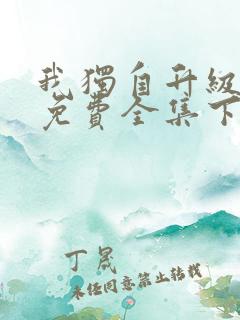 我獨自升級
免費全集下
丁晟
未经同意禁止转载